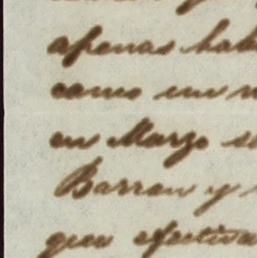 apenas hab
como un n
en Marzo s
Barran y
que efectiva